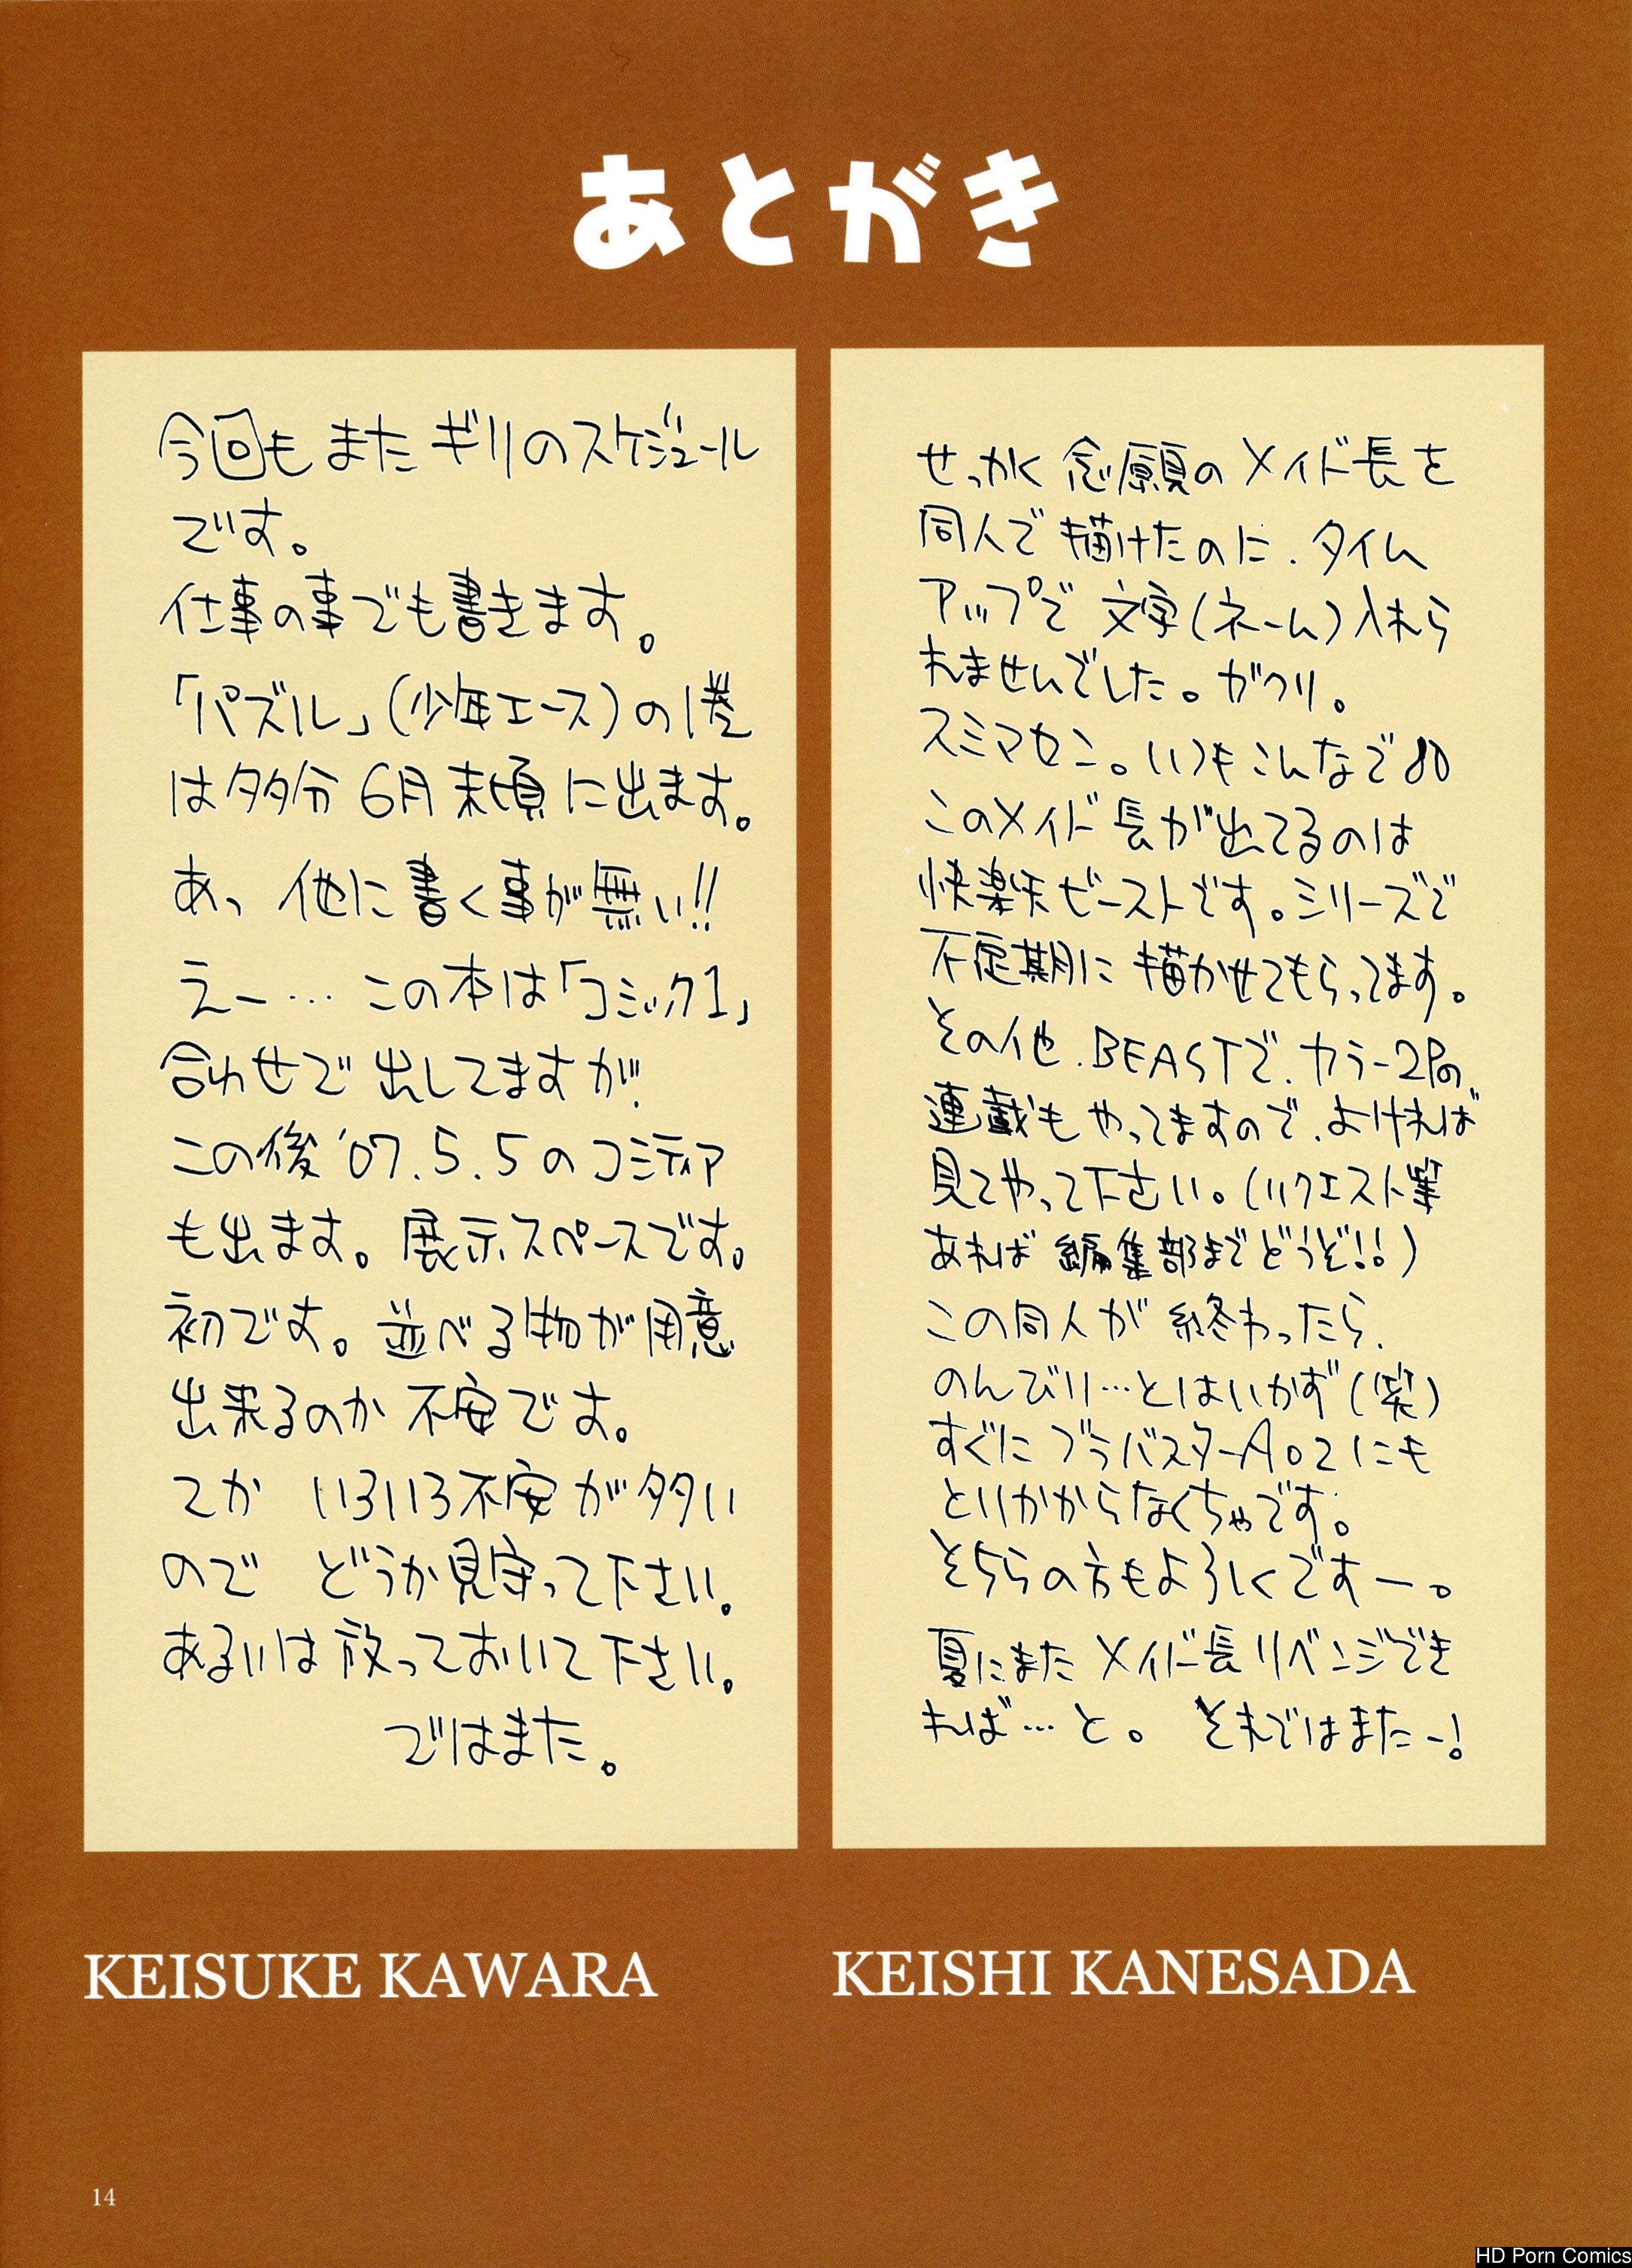 あとがき
今回もまたギリのスケジュール
です。
仕事の事でも書きます。
「パズル」(少年エース)の1巻
は多分6月末頃に出ます。
あっ 他に書く事が無い!!
えー… この本は「コミック1」
合わせで出してますが、
この後'07.5.5のコミティア
も出ます。展示スペースです。
初です。並べる物が用意
出来るのか不安です。
てか いろいろ不安が多い
ので どうか見守って下さい。
あるいは放っておいて下さい。
ではまた。
KEISUKE KAWARA
せっかく念願のメイド長を
同人で描けたのに、タイム
アップで文字(ネーム)入れら
れませんでした。ガクリ。
スミマセン。いつもこんなで
このメイド長が出てるのは
快楽天ビーストです。シリーズで
不定期に描かせてもらってます。
その他、BEASTで、カラー2Pの
連載もやってますので、よければ
見てやって下さい。(リクエスト等
あれば編集部までどうぞ!!)
この同人が終わったら、
のんびり…とはいかず(笑)
すぐにブラバスターA02にも
とりかからなくちゃです。
そちらの方もよろしくですー。
夏にまたメイド長リベンジでき
れば…と。 それではまたー!
KEISHI KANESADA
14
HD Porn Comics